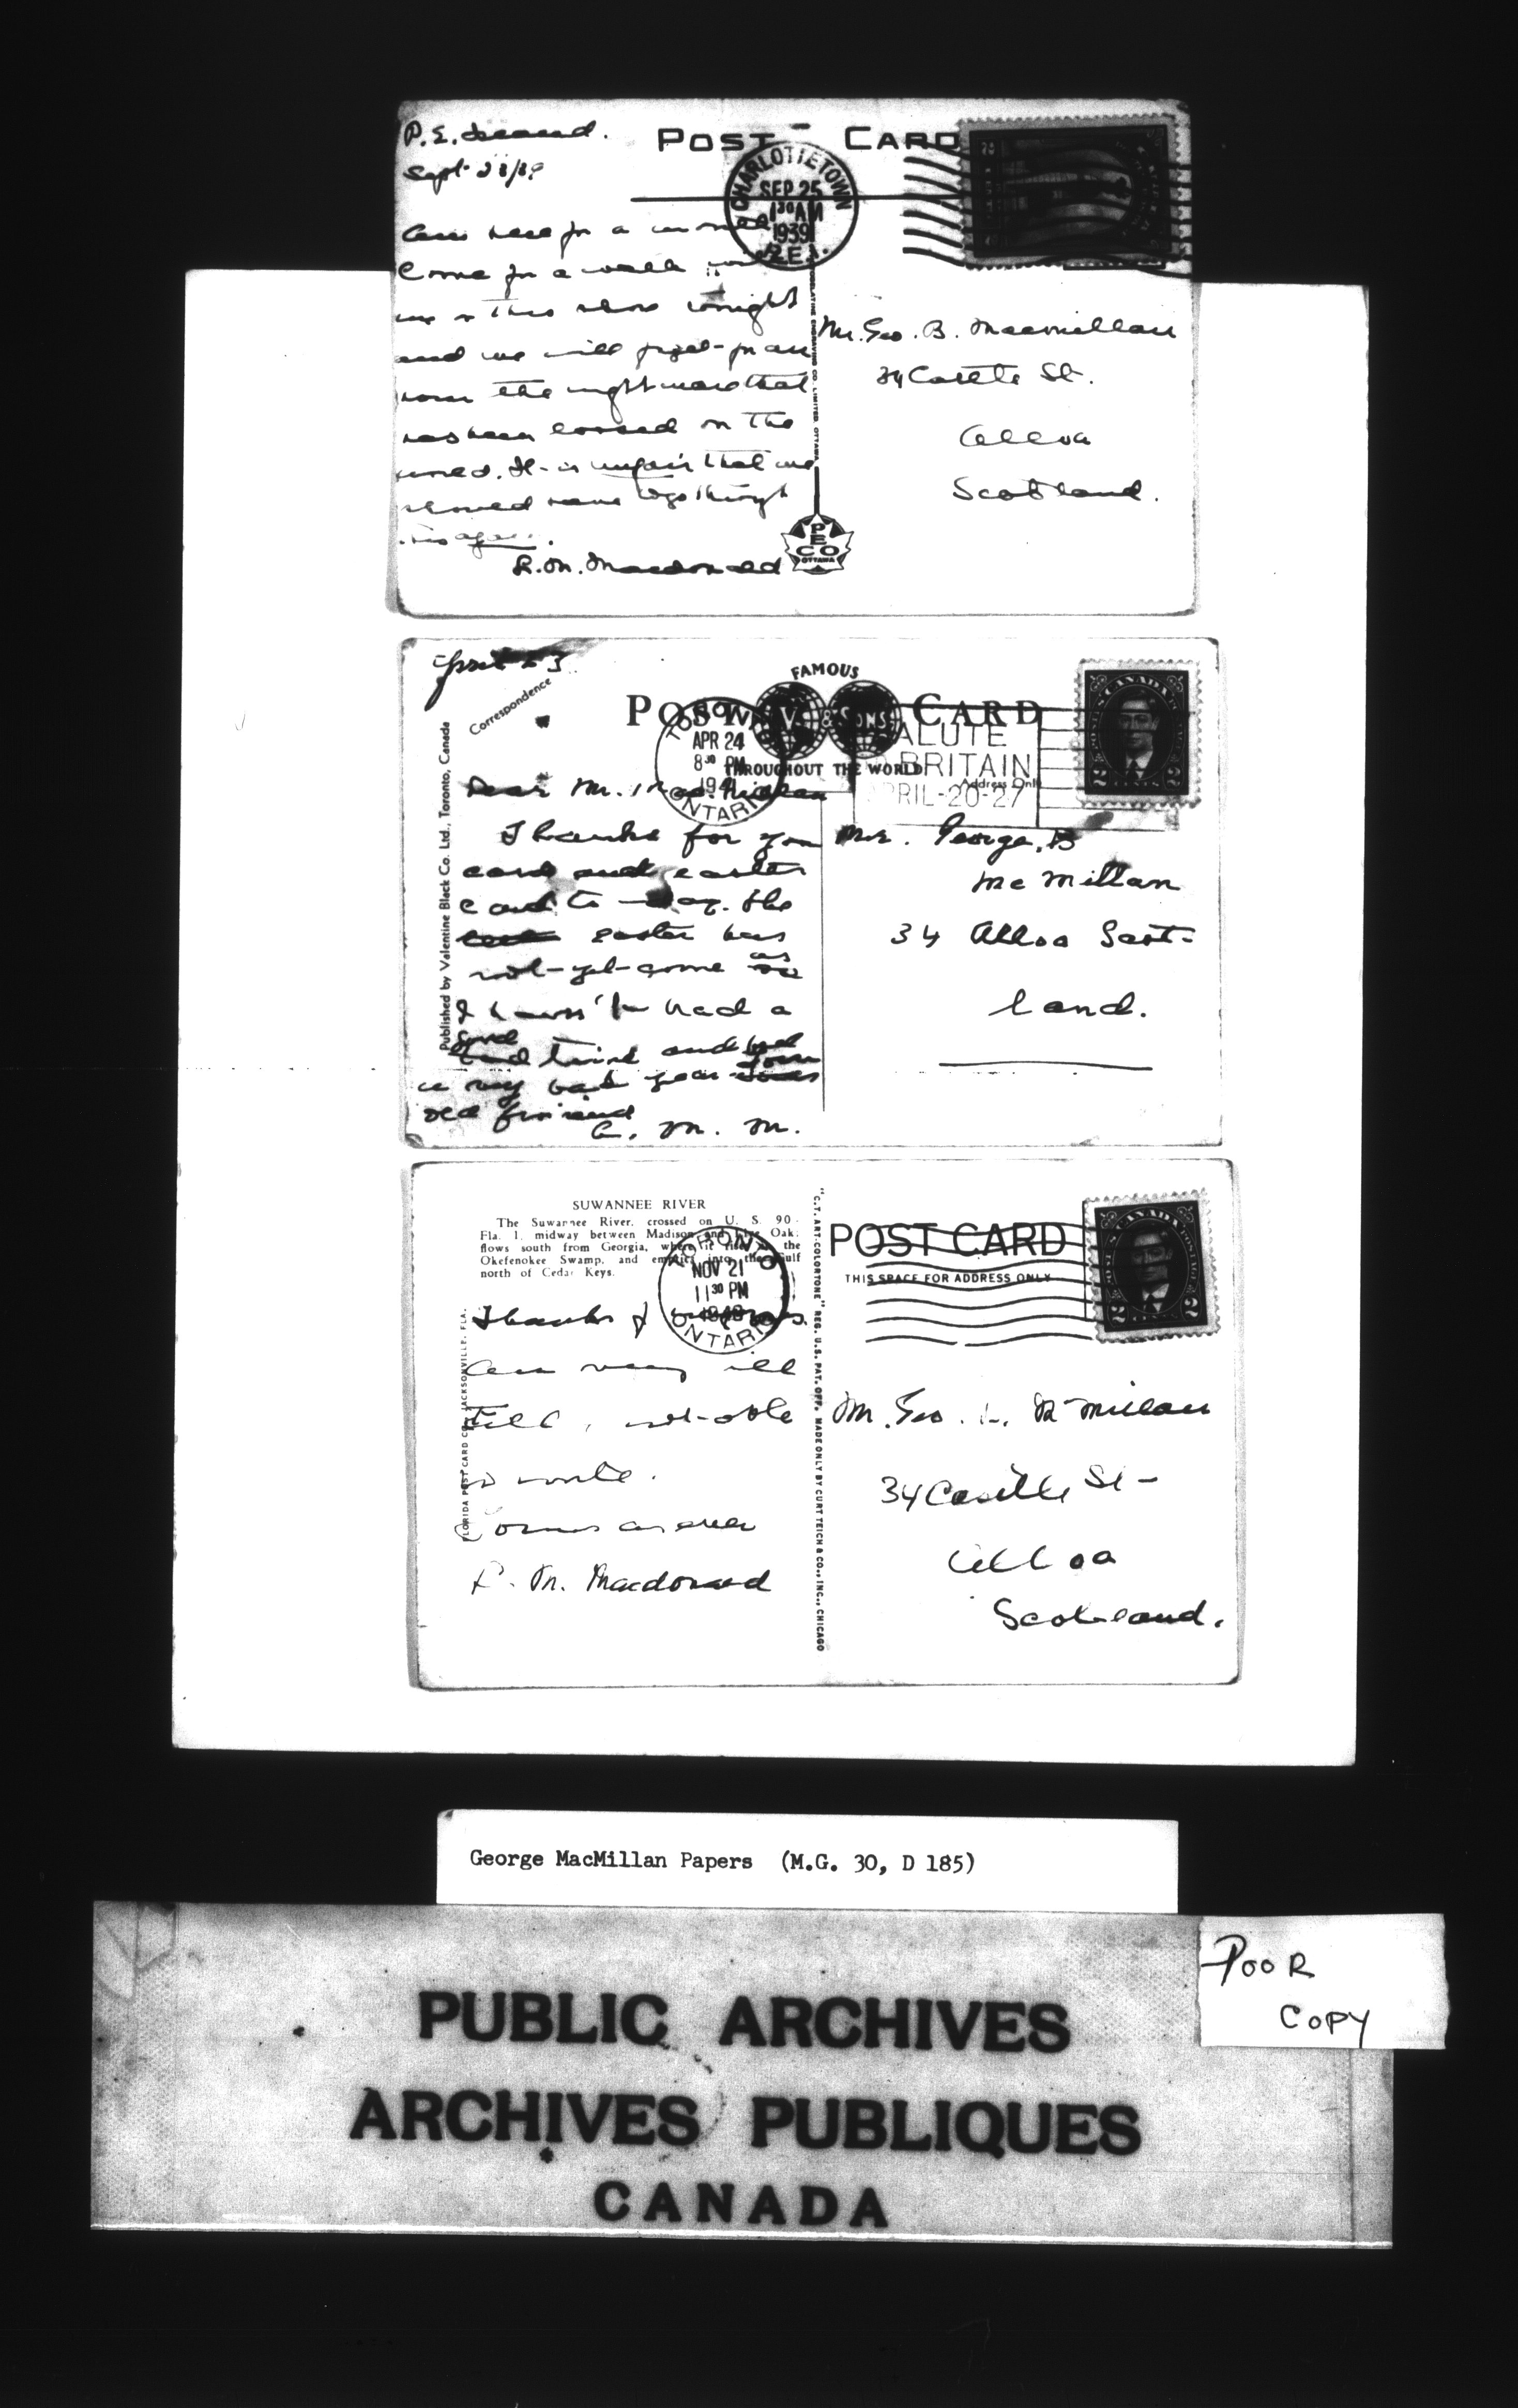 P. E. Island.
Sept 23/39
POST CARD
CHARLOTTETOWN
SEP 25
1 30 AM
1939
P.E.I.
Am here for a
Come for a walk
me on this shore tonight
and we will forget for an
hour the nightmare that
has been loosed on the
world. It is unfair that we
should have to go through
this again.
L. M. Macdonald
Mr. Geo. B. Macmillan
34 Castle St.
Alloa
Scotland.
PECO
OTTAWA
April 23
Correspondence
Published by Valentine Black Co. Ltd., Toronto, Canada
FAMOUS
POST CARD
V. & SONS
THROUGHOUT THE WORLD
Address Only
TORONTO
APR 24
8 30 PM
194
ONTARIO
SALUTE
BRITAIN
APRIL-20-27
Dear Mr. MacMillan
Thanks for your
card and easter
card to-day. The
easter has
not yet come as
I haven't had a
good
time and had
a very bad year
old friend
L. M. M.
Mr. George. B
McMillan
34 Alloa Scot-
land.
SUWANNEE RIVER
The Suwannee River, crossed on U. S. 90-
Fla. 1, midway between Madison and Live Oak,
flows south from Georgia, where it rises in the
Okefenokee Swamp, and empties into the Gulf
north of Cedar Keys.
FLORIDA POST CARD CO., JACKSONVILLE, FLA.
"C.T. ART-COLORTONE" REG. U.S. PAT. OFF. MADE ONLY BY CURT TEICH & CO., INC., CHICAGO
POST CARD
THIS SPACE FOR ADDRESS ONLY
TORONTO
NOV 21
11 30 PM
ONTARIO
Thanks for
Am very ill
still, not able
to write.
Yours as ever
L. M. Macdonald
Mr. Geo. McMillan
34 Castle St
Alloa
Scotland.
George MacMillan Papers (M.G. 30, D 185)
POOR
COPY
PUBLIC ARCHIVES
ARCHIVES PUBLIQUES
CANADA